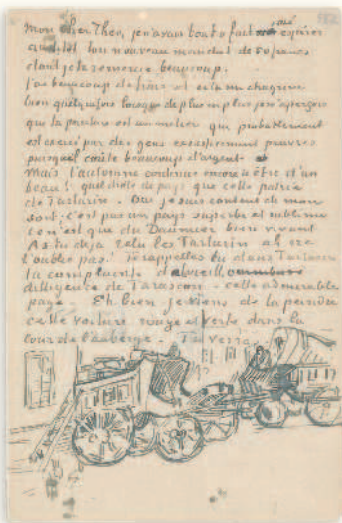 Mon cher Theo, je n'avais tout à fait osé espérer
aussitôt ton nouveau mandat de 50 francs
dont je te remercie beaucoup.
J'ai beaucoup de frais et cela me chagrine
bien quelquefois lorsque de plus en plus je m'aperçois
que la peinture est un métier qui probablement
est exercé par des gens excessivement pauvres
puisqu'il coûte beaucoup d'argent
Mais l'automne continue encore à être d'un
beau! quel drole de pays que cette patrie
de Tartarin. Oui je suis content de mon
sort. c'est pas un pays superbe et sublime
ce n'est que du Daumier bien vivant.
As tu déjà relu les Tartarin ah ne
l'oublie pas! Te rappelles tu dans Tartarin
la complainte de la vieille
diligence de Tarascon - cette admirable
page. Eh bien je viens de la peindre
cette voiture rouge et verte dans la
cour de l'auberge. Tu verras